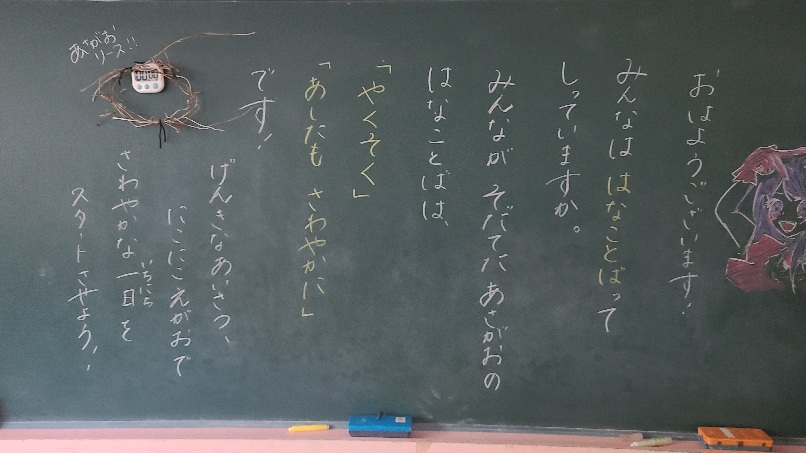 おはようございます!
みんなは はなことばって
しっていますか。
みんなが そだてた あさがおの
はなことばは、
「やくそく」
「あしたも さわやかに」
です!
げんきなあいさつ、
にこにこえがおで
さわやかな一日を
いちにち
スタートさせよう!
あさがお
リース!!
00:00